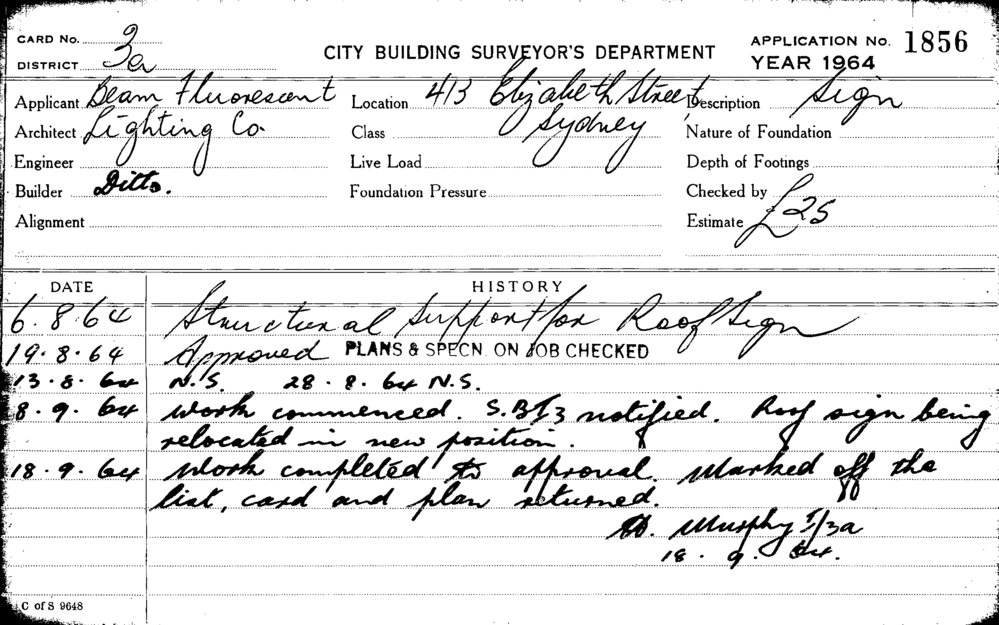 CARD No. 3
DISTRICT 3a
CITY BUILDING SURVEYOR'S DEPARTMENT
APPLICATION No. 1856
YEAR 1964
Applicant Beam Fluorescent Location 413 Elizabeth Street Description Sign
Architect Lighting Co. Class Sydney Nature of Foundation
Engineer Live Load Depth of Footings
Builder Ditto. Foundation Pressure Checked by
Alignment Estimate £25
DATE HISTORY
6.8.64 Structural Support for Roof Sign
19.8.64 Approved PLANS & SPECN. ON JOB CHECKED
13.8.64 N.S. 28.8.64 N.S.
8.9.64 Work commenced. S.B.I 3 notified. Roof sign being
relocated in new position.
18.9.64 Work completed to approval. Marked off the
list, card and plan returned.
Murphy I/3a
18.9.64.
C of S 9648